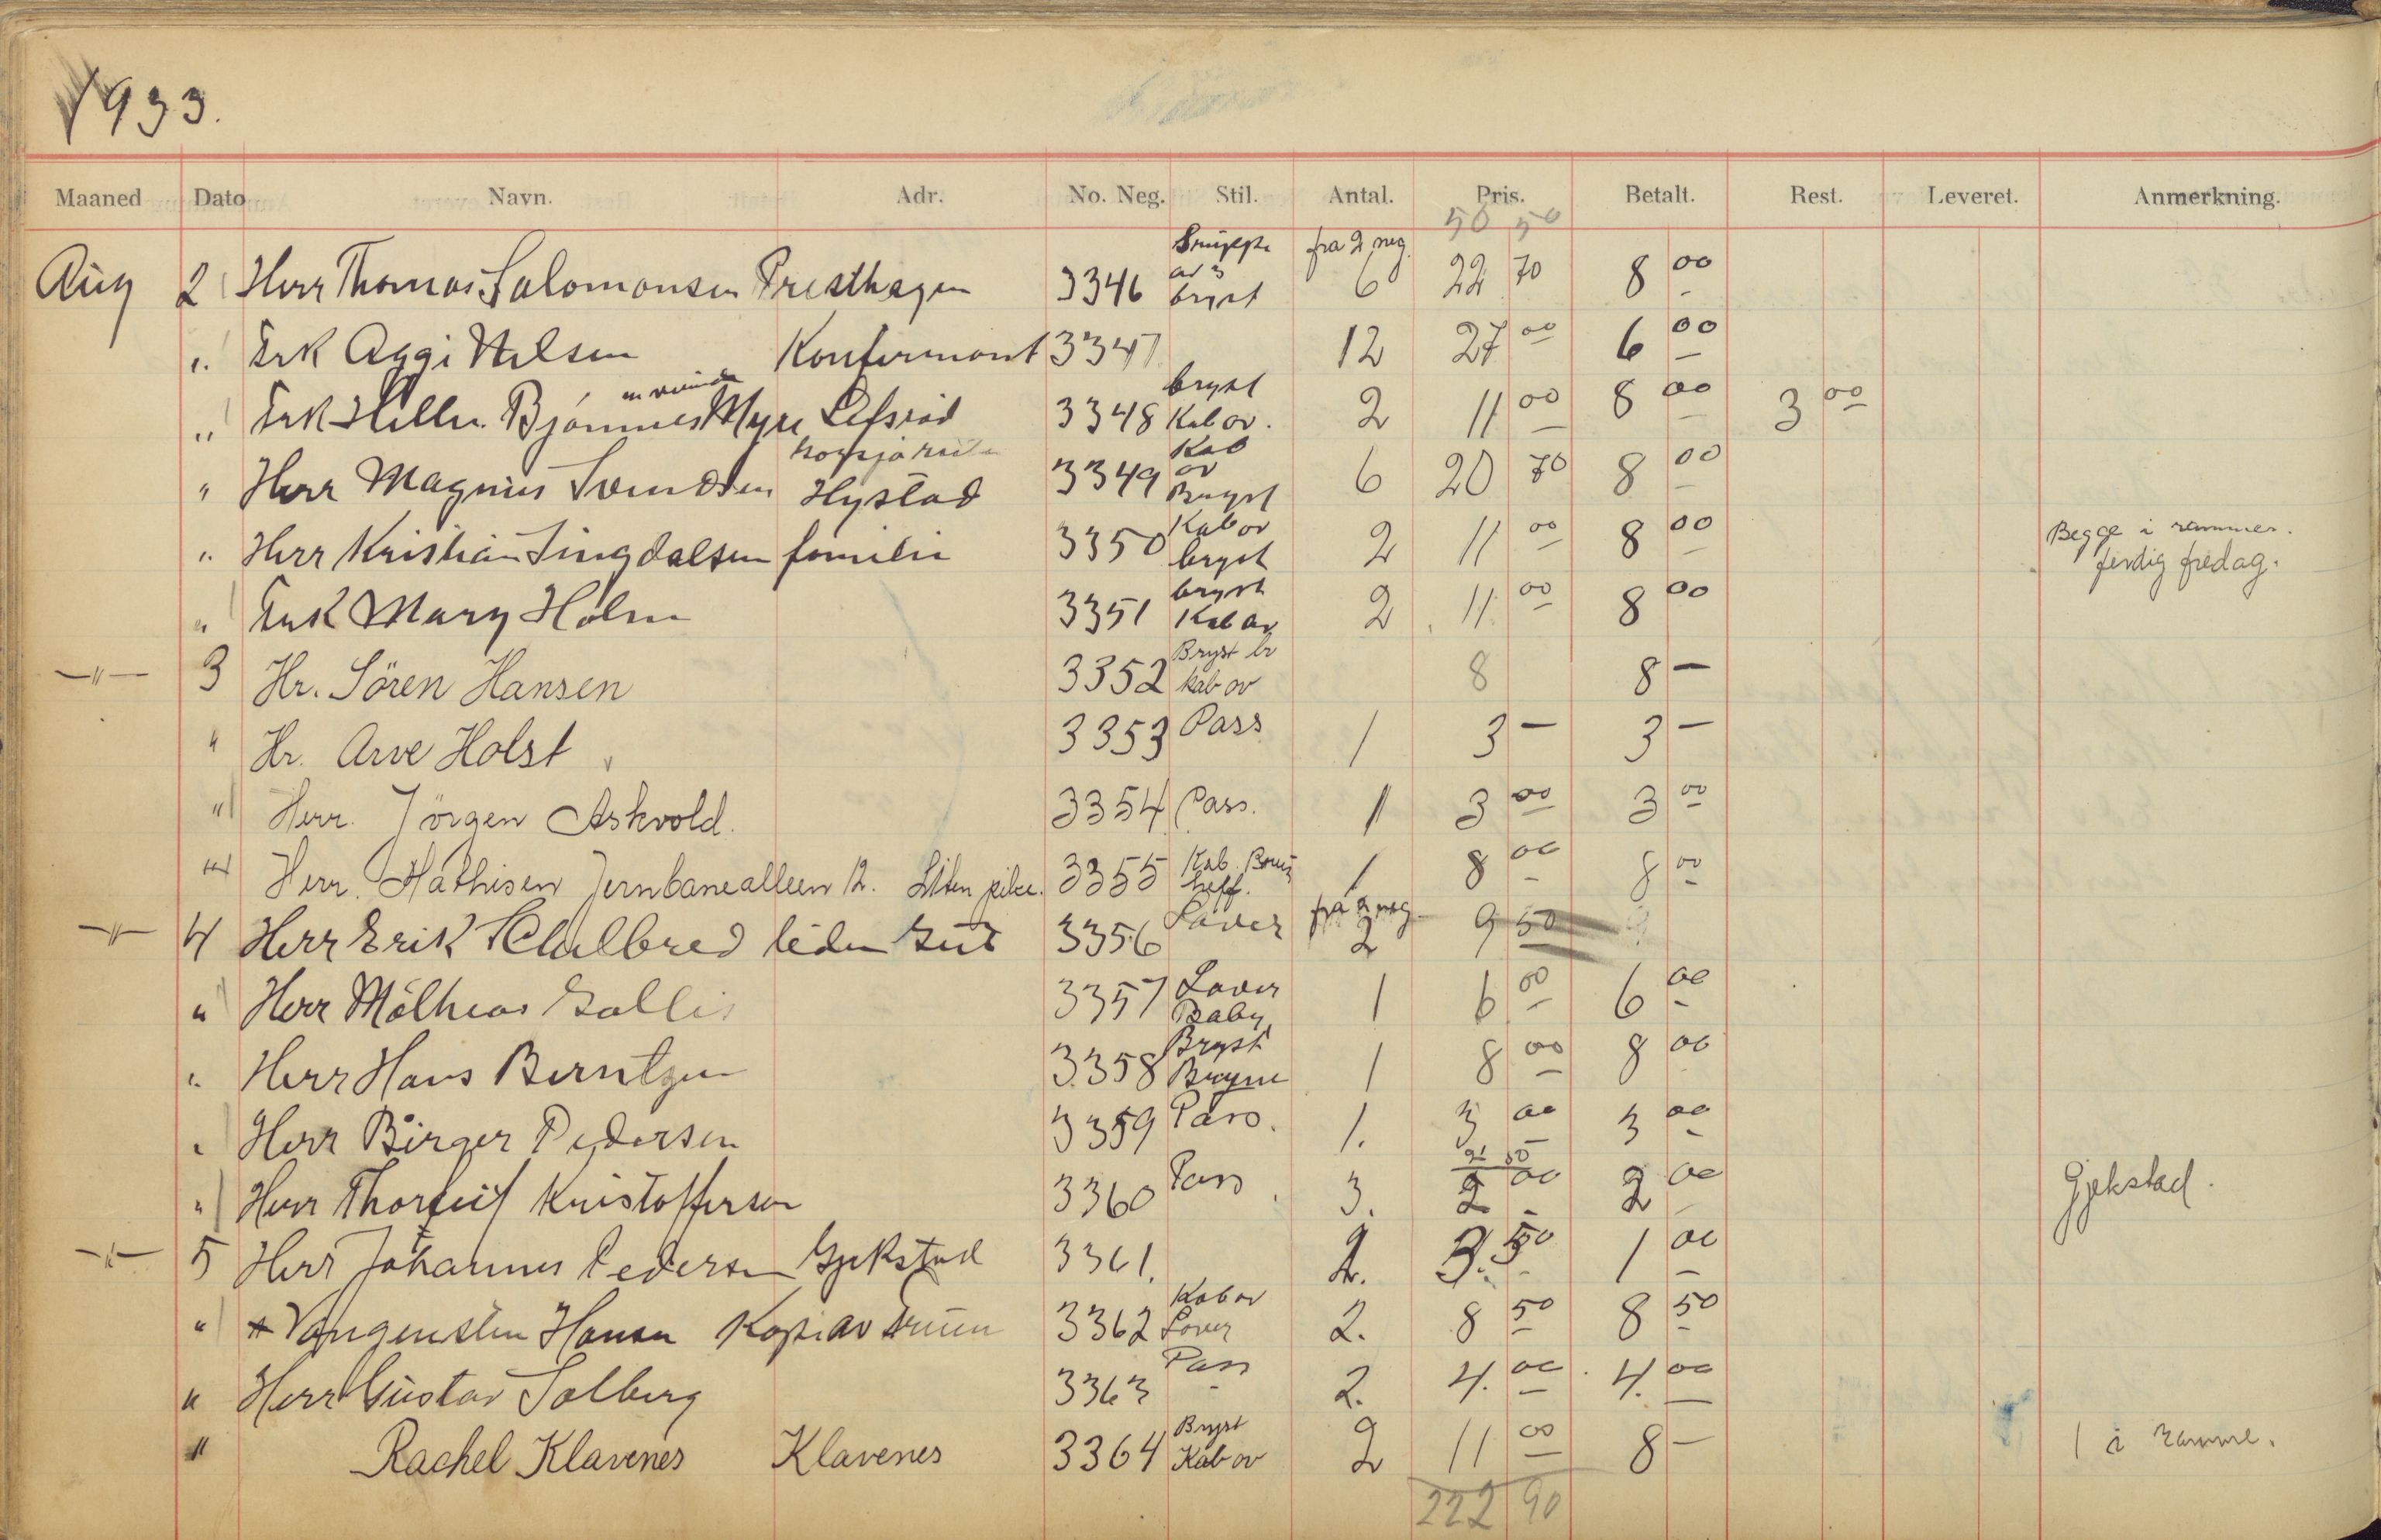 1933.
Maaned Dato Navn. Adr. No. Neg. Stil. Antal. Pris. Betalt. Rest. Leveret. Anmerkning.
50 50
Aug 2 Herr Thomas Salomonsen Presthagen 3346 av 3 bryst fra 2 neg. 6 22 70 8 00
" Frk Aggi Nilsen Konfirmant 3347 12 27 00 6 00
" Frk Myre 3348 bryst Kab ov. 2 11 00 8 00 3 00
" Herr Magnus Svendsen Hystad 3349 Kab ov Bryst 6 20 70 8 00
" Herr Kristian Lingdalsen familie 3350 Kab ov bryst 2 11 00 8 00 Begge i rammer. ferdig fredag.
" Frk Mary Holm 3351 bryst Kab ov 2 11 00 8 00
—"— 3 Hr. Sören Hansen 3352 Bryst br kab ov 8 8 —
" Hr. Arve Holst 3353 Pass 1 3 — 3 —
" Herr. Jörgen Askvold. 3354 Pass. 1 3 00 3 00
" Herr. Mathisen Jernbanealleen 12. Liten pike. 3355 Kab. 1 8 00 8 00
—"— 4 Herr Erik liten gut 3356 fra 2 neg. 2 9 50
" Herr Gallis 3357 Baby 1 6 00 6 00
" Herr Hans Berntzen 3358 Bryst 1 8 00 8 00
" Herr Birger Pedersen 3359 Pass. 1. 3 00 3 00
" Herr Thorleif Kristoffersen 3360 Pass 3. 2 00 2 00 Gjekstad.
—"— 5 Herr Johannes Pedersen Gjekstad 3361. 2. 3. 50 1 00
" Vangensten Hansen Kopi av 3362 Kab ov 2. 8 50 8 50
" Herr Gustav Solberg 3363 Pass 2. 4. 00 4. 00
" Rachel Klavenes Klavenes 3364 Bryst Kab ov 2 11 00 8 — 1 i ramme.
222 90